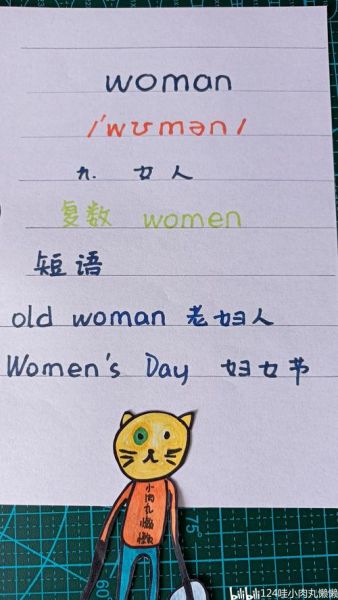 woman
/ˈwʊmən/
n. 女人
复数 women
短语
old woman 老妇人
Women's Day 妇女节
小肉丸懒懒
75°
60°
bilibili 124哇小肉丸懒懒